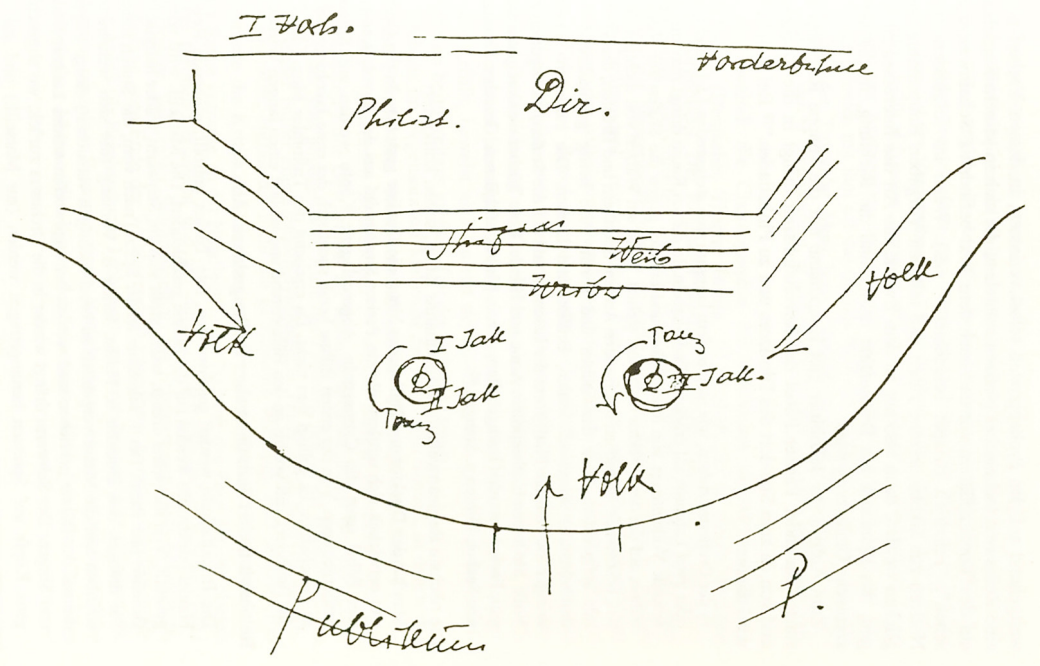 I Vorh.
Vorderbühne
Philist.
Dir.
Weib
Weiber
Volk
Volk
I Jak
II Jak
Tanz
Tanz
III Jak.
Volk
Publikum
P.